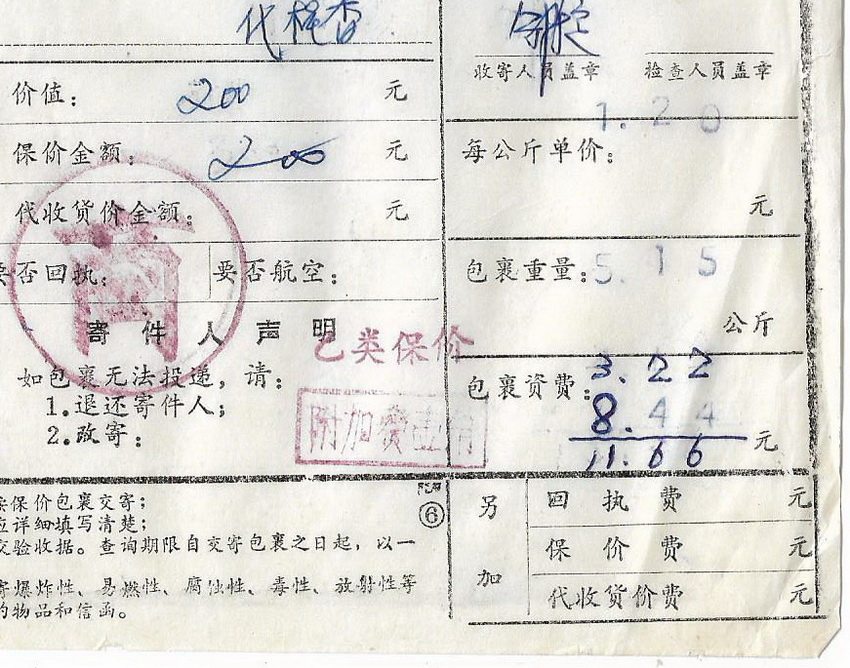 代检查
收寄人员盖章 检查人员盖章
价值: 200 元
1.20
保价金额: 200 元
每公斤单价:
元
代收货价金额: 元
商
要否回执: 要否航空:
包裹重量: 5.15
公斤
寄件人声明
乙类保价
如包裹无法投递,请:
1.退还寄件人;
2.改寄:
附加费壹角
包裹资费: 3.22
8.44
11.66 元
保价包裹交寄;
应详细填写清楚;
交验收据。查询期限自交寄包裹之日起,以一
寄爆炸性、易燃性、腐蚀性、毒性、放射性等
的物品和信函。
⑥
另加
回执费 元
保价费 元
代收货价费 元